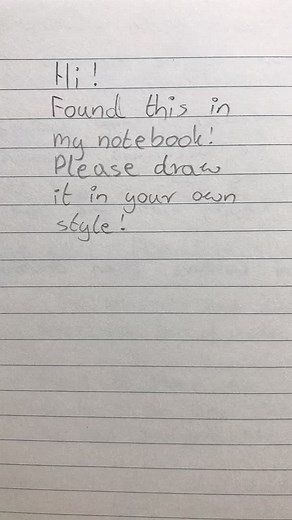 Hi!
Found this in
my notebook!
Please draw
it in your own
style!